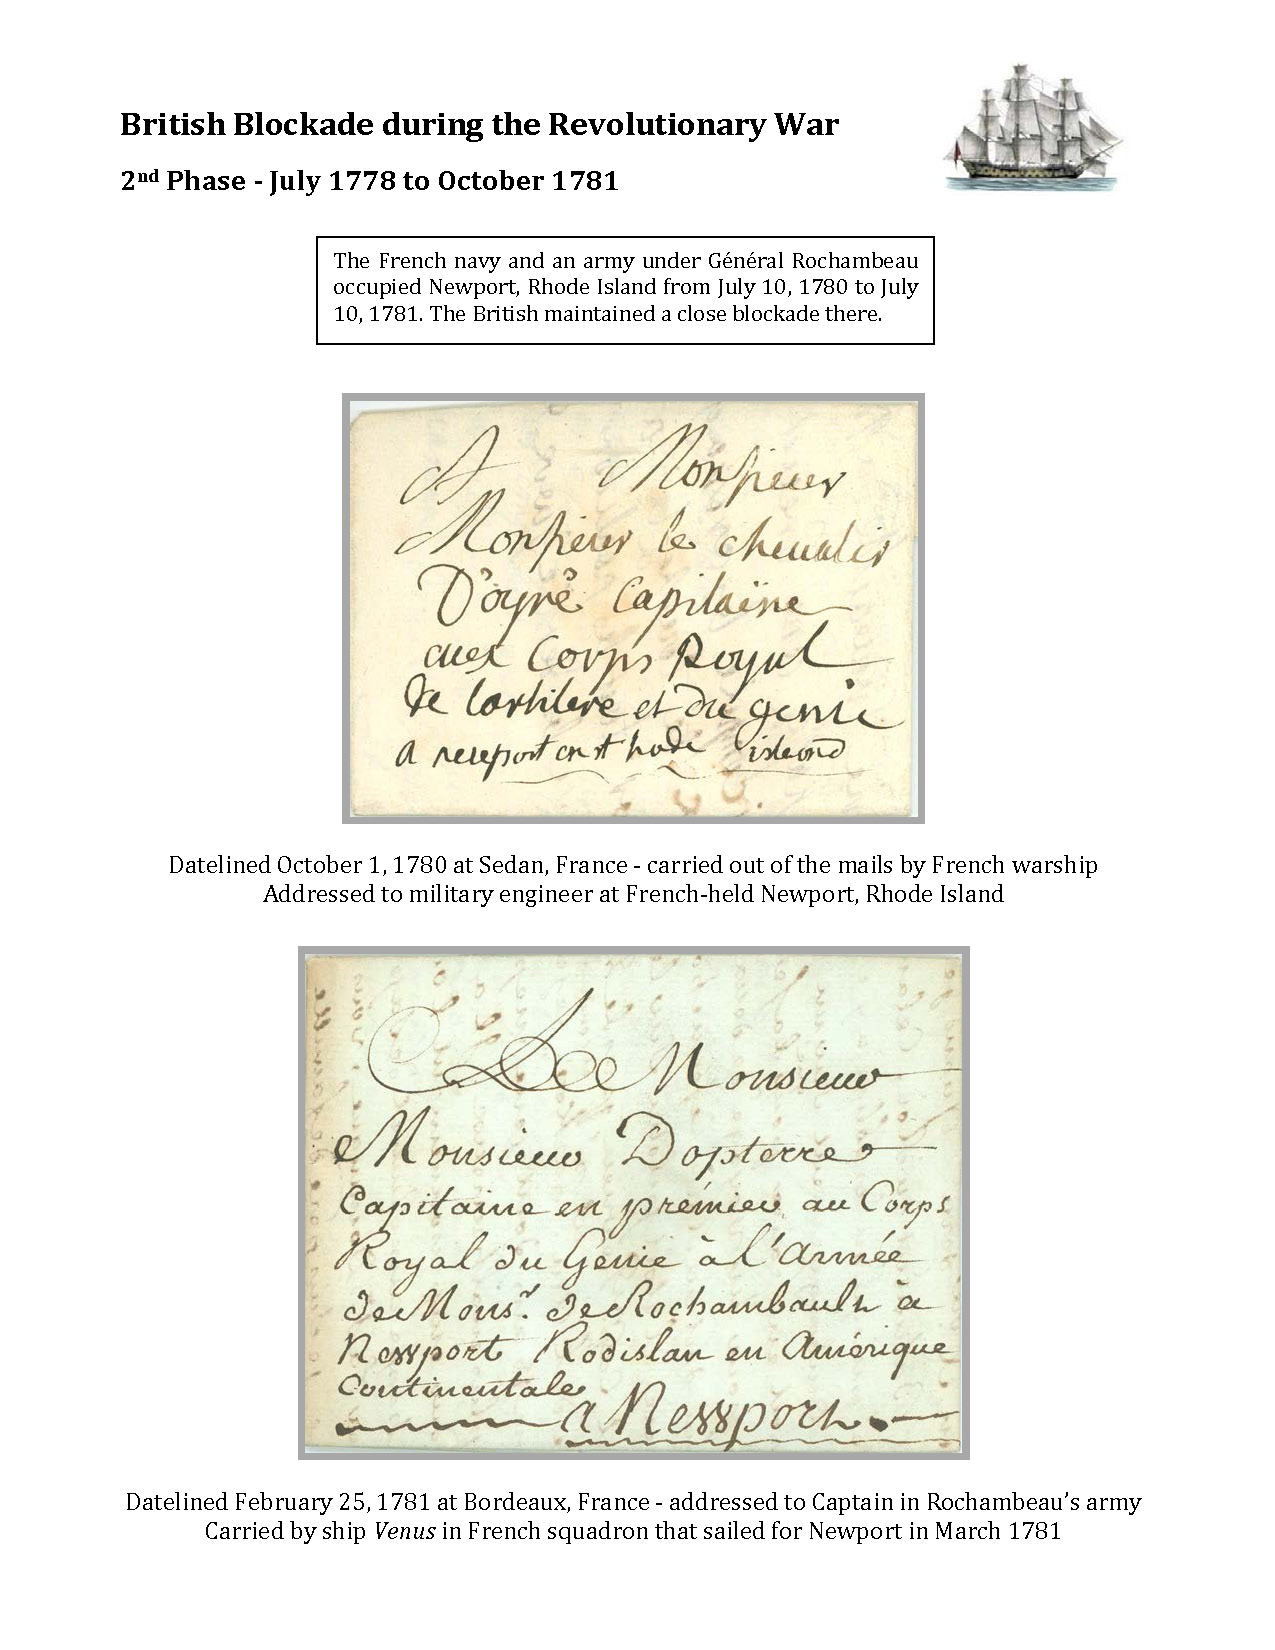 British Blockade during the Revolutionary War
2nd Phase - July 1778 to October 1781
The French navy and an army under Général Rochambeau
occupied Newport, Rhode Island from July 10, 1780 to July
10, 1781. The British maintained a close blockade there.
A Monsieur
Monsieur le chevalier
D'oyré Capitaine
aux Corps Royal
de lartilere et du genie
a neuport en rhode island
Datelined October 1, 1780 at Sedan, France - carried out of the mails by French warship
Addressed to military engineer at French-held Newport, Rhode Island
A Monsieur
Monsieur Dopterre
Capitaine en prémier au Corps
Royal du Genie à l'Armée
de Monsr. de Rochambault à
Newport Rodislan en Amérique
Continentale
a Newport
Datelined February 25, 1781 at Bordeaux, France - addressed to Captain in Rochambeau's army
Carried by ship Venus in French squadron that sailed for Newport in March 1781